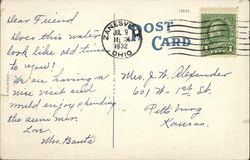 Dear Friend
Does this water
look like old time
to you?
We are having a
nice visit and
would enjoy spending
the summer.
Love
Mrs. Bauta
ZANESVILLE
JUL 9
1932
OHIO
POST
CARD
Mrs. J. W. Alexander
601 W. 1st St.
Pittsburg
Kansas.